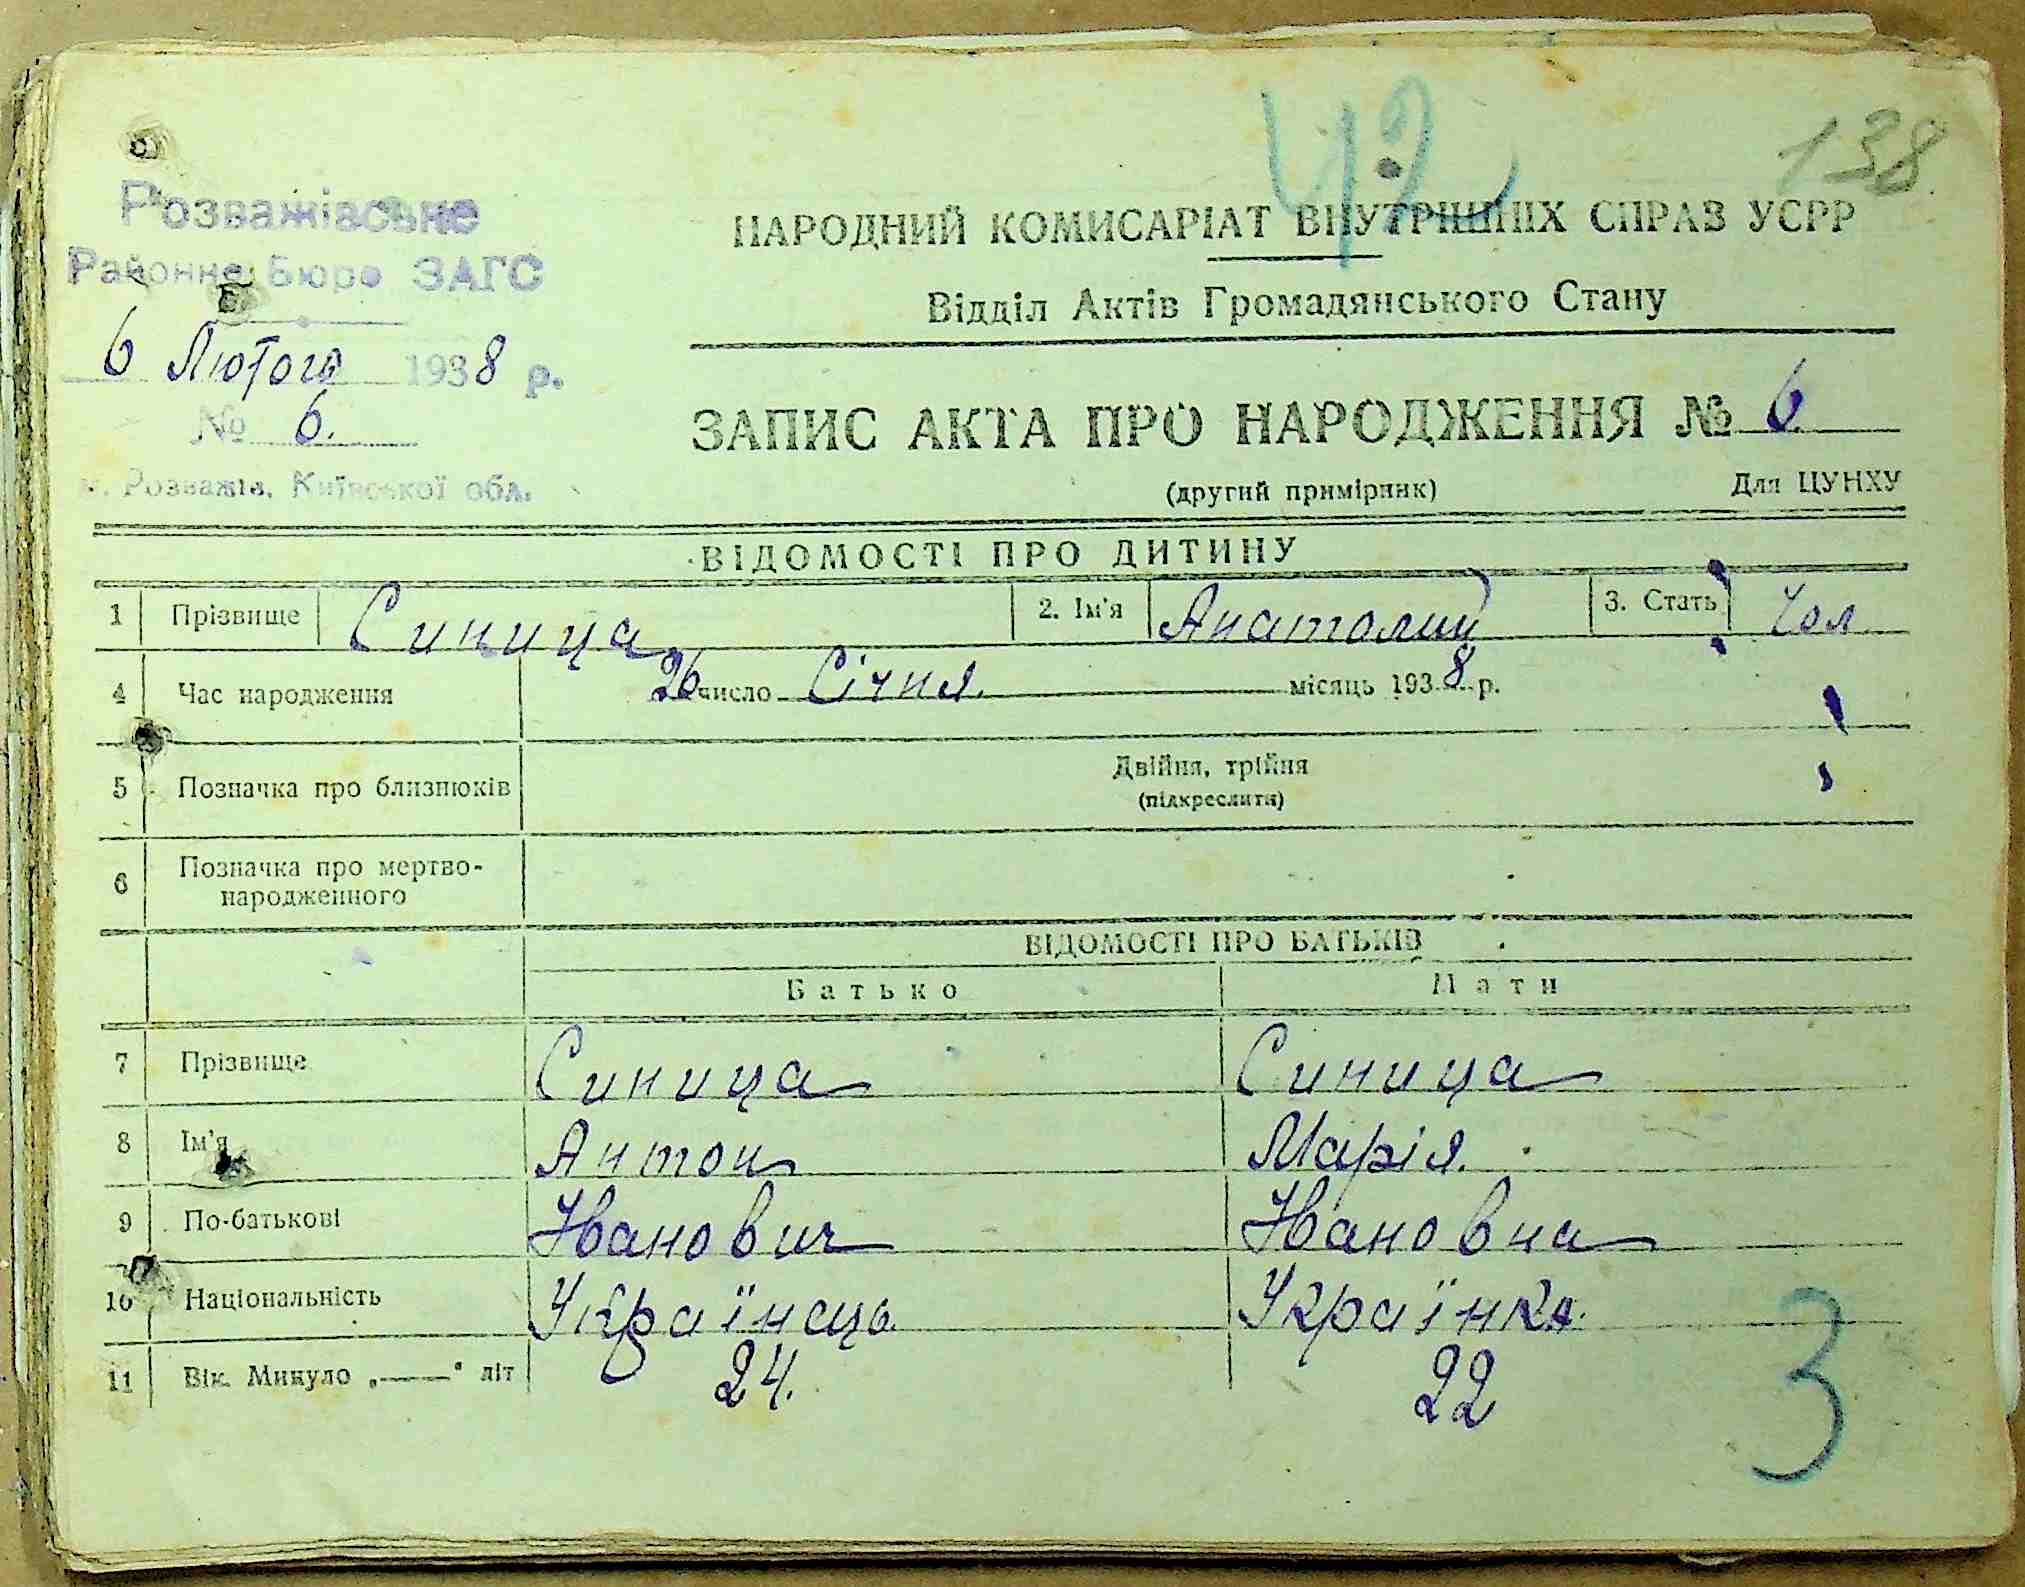 42
138
Розважівське
Районне Бюро ЗАГС
6 Лютого 1938 р.
№ 6.
м. Розважів, Київської обл.
НАРОДНИЙ КОМИСАРІАТ ВНУТРІШНІХ СПРАВ УСРР
Відділ Актів Громадянського Стану
ЗАПИС АКТА ПРО НАРОДЖЕННЯ № 6
(другий примірник) Для ЦУНХУ
ВІДОМОСТІ ПРО ДИТИНУ
1 Прізвище Синица 2. Ім'я Анатолий 3. Стать Чол
4 Час народження 26 число Січня. місяць 1938 р.
5 Позначка про близнюків Двійня, трійня
(підкреслити)
6 Позначка про мертво-
народженного
ВІДОМОСТІ ПРО БАТЬКІВ
Батько Мати
7 Прізвище Синица Синица
8 Ім'я Антон Марія.
9 По-батькові Іванович Івановна
10 Національність Українець Українка.
11 Вік. Минуло „——“ літ 24. 22
3